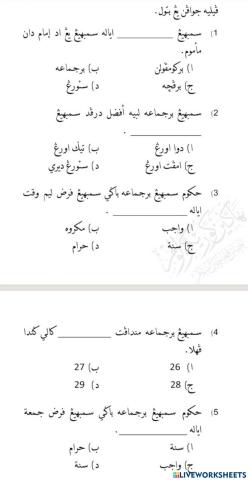 ڤيليه جواڤن يڠ بتول.
1) سمبهيڠ __________ اياله سمبهيڠ يڠ اد إمام دان
مأموم.
ا) بركومڤولن ب) برجماعه
ج) برڤچه د) سأورڠ
2) سمبهيڠ برجماعه لبيه أفضل درڤد سمبهيڠ
__________ .
ا) دوا اورڠ ب) تيݢ اورڠ
ج) امڤت اورڠ د) سأورڠ ديري
3) حكوم سمبهيڠ برجماعه باݢي سمبهيڠ فرض ليم وقت
اياله __________ .
ا) واجب ب) مكروه
ج) سنة د) حرام
4) سمبهيڠ برجماعه منداڤت __________ كالي ݢندا
ڤهلا.
ا) 26 ب) 27
ج) 28 د) 29
5) حكوم سمبهيڠ برجماعه باݢي سمبهيڠ فرض جمعة
اياله __________ .
ا) سنة ب) حرام
ج) واجب د) سنة
LIVEWORKSHEETS